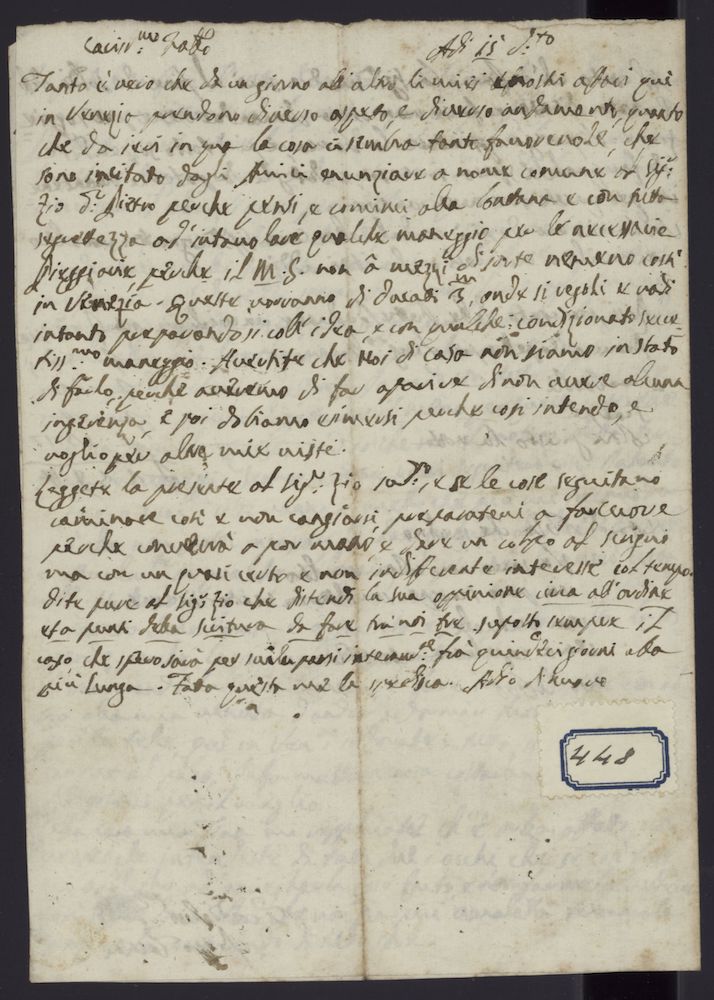 Cariss.mo Fratto
Adì 15 d.to
Tanto è vero che da un giorno all'altro li miei e vostri affari quì
in Venezia prendono diverso aspeto, e diverso andamento, quanto
che da ieri in qua la cosa sembra tanto favorevole, che
sono incitato dagli Amici enunziare a nome comune Sig.r
Zio d.n Pietro perche pensi, e cominci alla lontana e con tutta
segretezza ad intavolare qualche maneggio per le necessarie
Pieggiarie, perche il M. S. non à mezzi di sorte nemeno costì
in Venezia. Queste vorranno di ducati 3/m, onde si regoli e vadi
intanto preparandosi coll'idea, e con qualche condizionato secre-
tiss.mo maneggio. Avertite che Noi di casa non siamo in stato
di farlo, perche averemo di far aparire di non avere alcuna
ingerenza, e poi dobiamo esimersi perche così intendo, e
voglio per altre mie viste.
Leggete la presente al Sig.r Zio sud.to, e se le cose seguitano
caminare così e non cangiarsi, preparatevi a far cuore
perche converrà a por mano, e dare un colpo al scrigno
ma con un quasi certo e non indifferente interesse col tempo.
dite pure al Sig.r Zio che distendi la sua oppinione circa all'ordine
e a punti della scritura da fare trà noi tre suposto sempre il
caso che spero sarà per sviluparsi interam.te frà quindeci giorni alla
più lunga. Fata questa mie la spedisco. Adio di nuovo
448